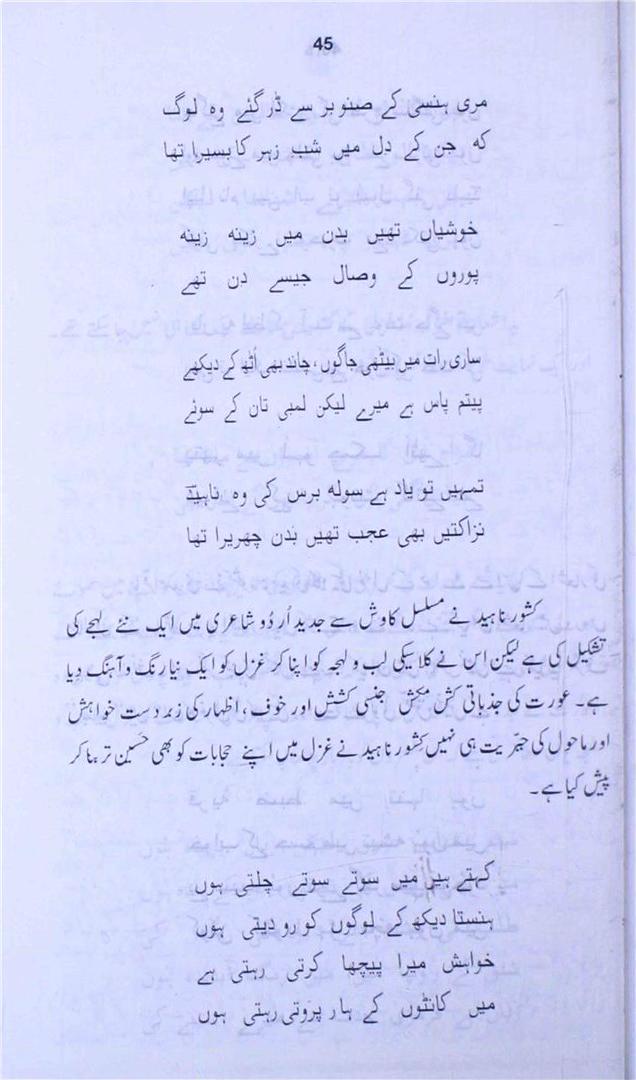 45
مری ہنسی کے صنوبر سے ڈر گئے وہ لوگ
کہ جن کے دل میں شب زہر کا بسیرا تھا
خوشیاں تھیں بدن میں زینہ زینہ
پوروں کے وصال جیسے دن تھے
ساری رات میں بیٹھی جاگوں، چاند بھی اُٹھ کے دیکھے
پیتم پاس ہے میرے لیکن لمبی تان کے سوئے
تمہیں تو یاد ہے سولہ برس کی وہ ناہید
نزاکتیں بھی عجب تھیں بدن چھریرا تھا
کشور ناہید نے مسلسل کاوش سے جدید اُردو شاعری میں ایک نئے لہجے کی
تشکیل کی ہے لیکن اس نے کلاسیکی لب و لہجہ کو اپنا کر غزل کو ایک نیا رنگ و آہنگ دیا
ہے۔ عورت کی جذباتی کش مکش جنسی کشش اور خوف، اظہار کی زبردست خواہش
اور ماحول کی جبریت ہی نہیں کشور ناہید نے غزل میں اپنے حجابات کو بھی حسین تر بنا کر
پیش کیا ہے۔
کہتے ہیں میں سوتے سوتے چلتی ہوں
ہنستا دیکھ کے لوگوں کو رو دیتی ہوں
خواہش میرا پیچھا کرتی رہتی ہے
میں کانٹوں کے ہار پروتی رہتی ہوں